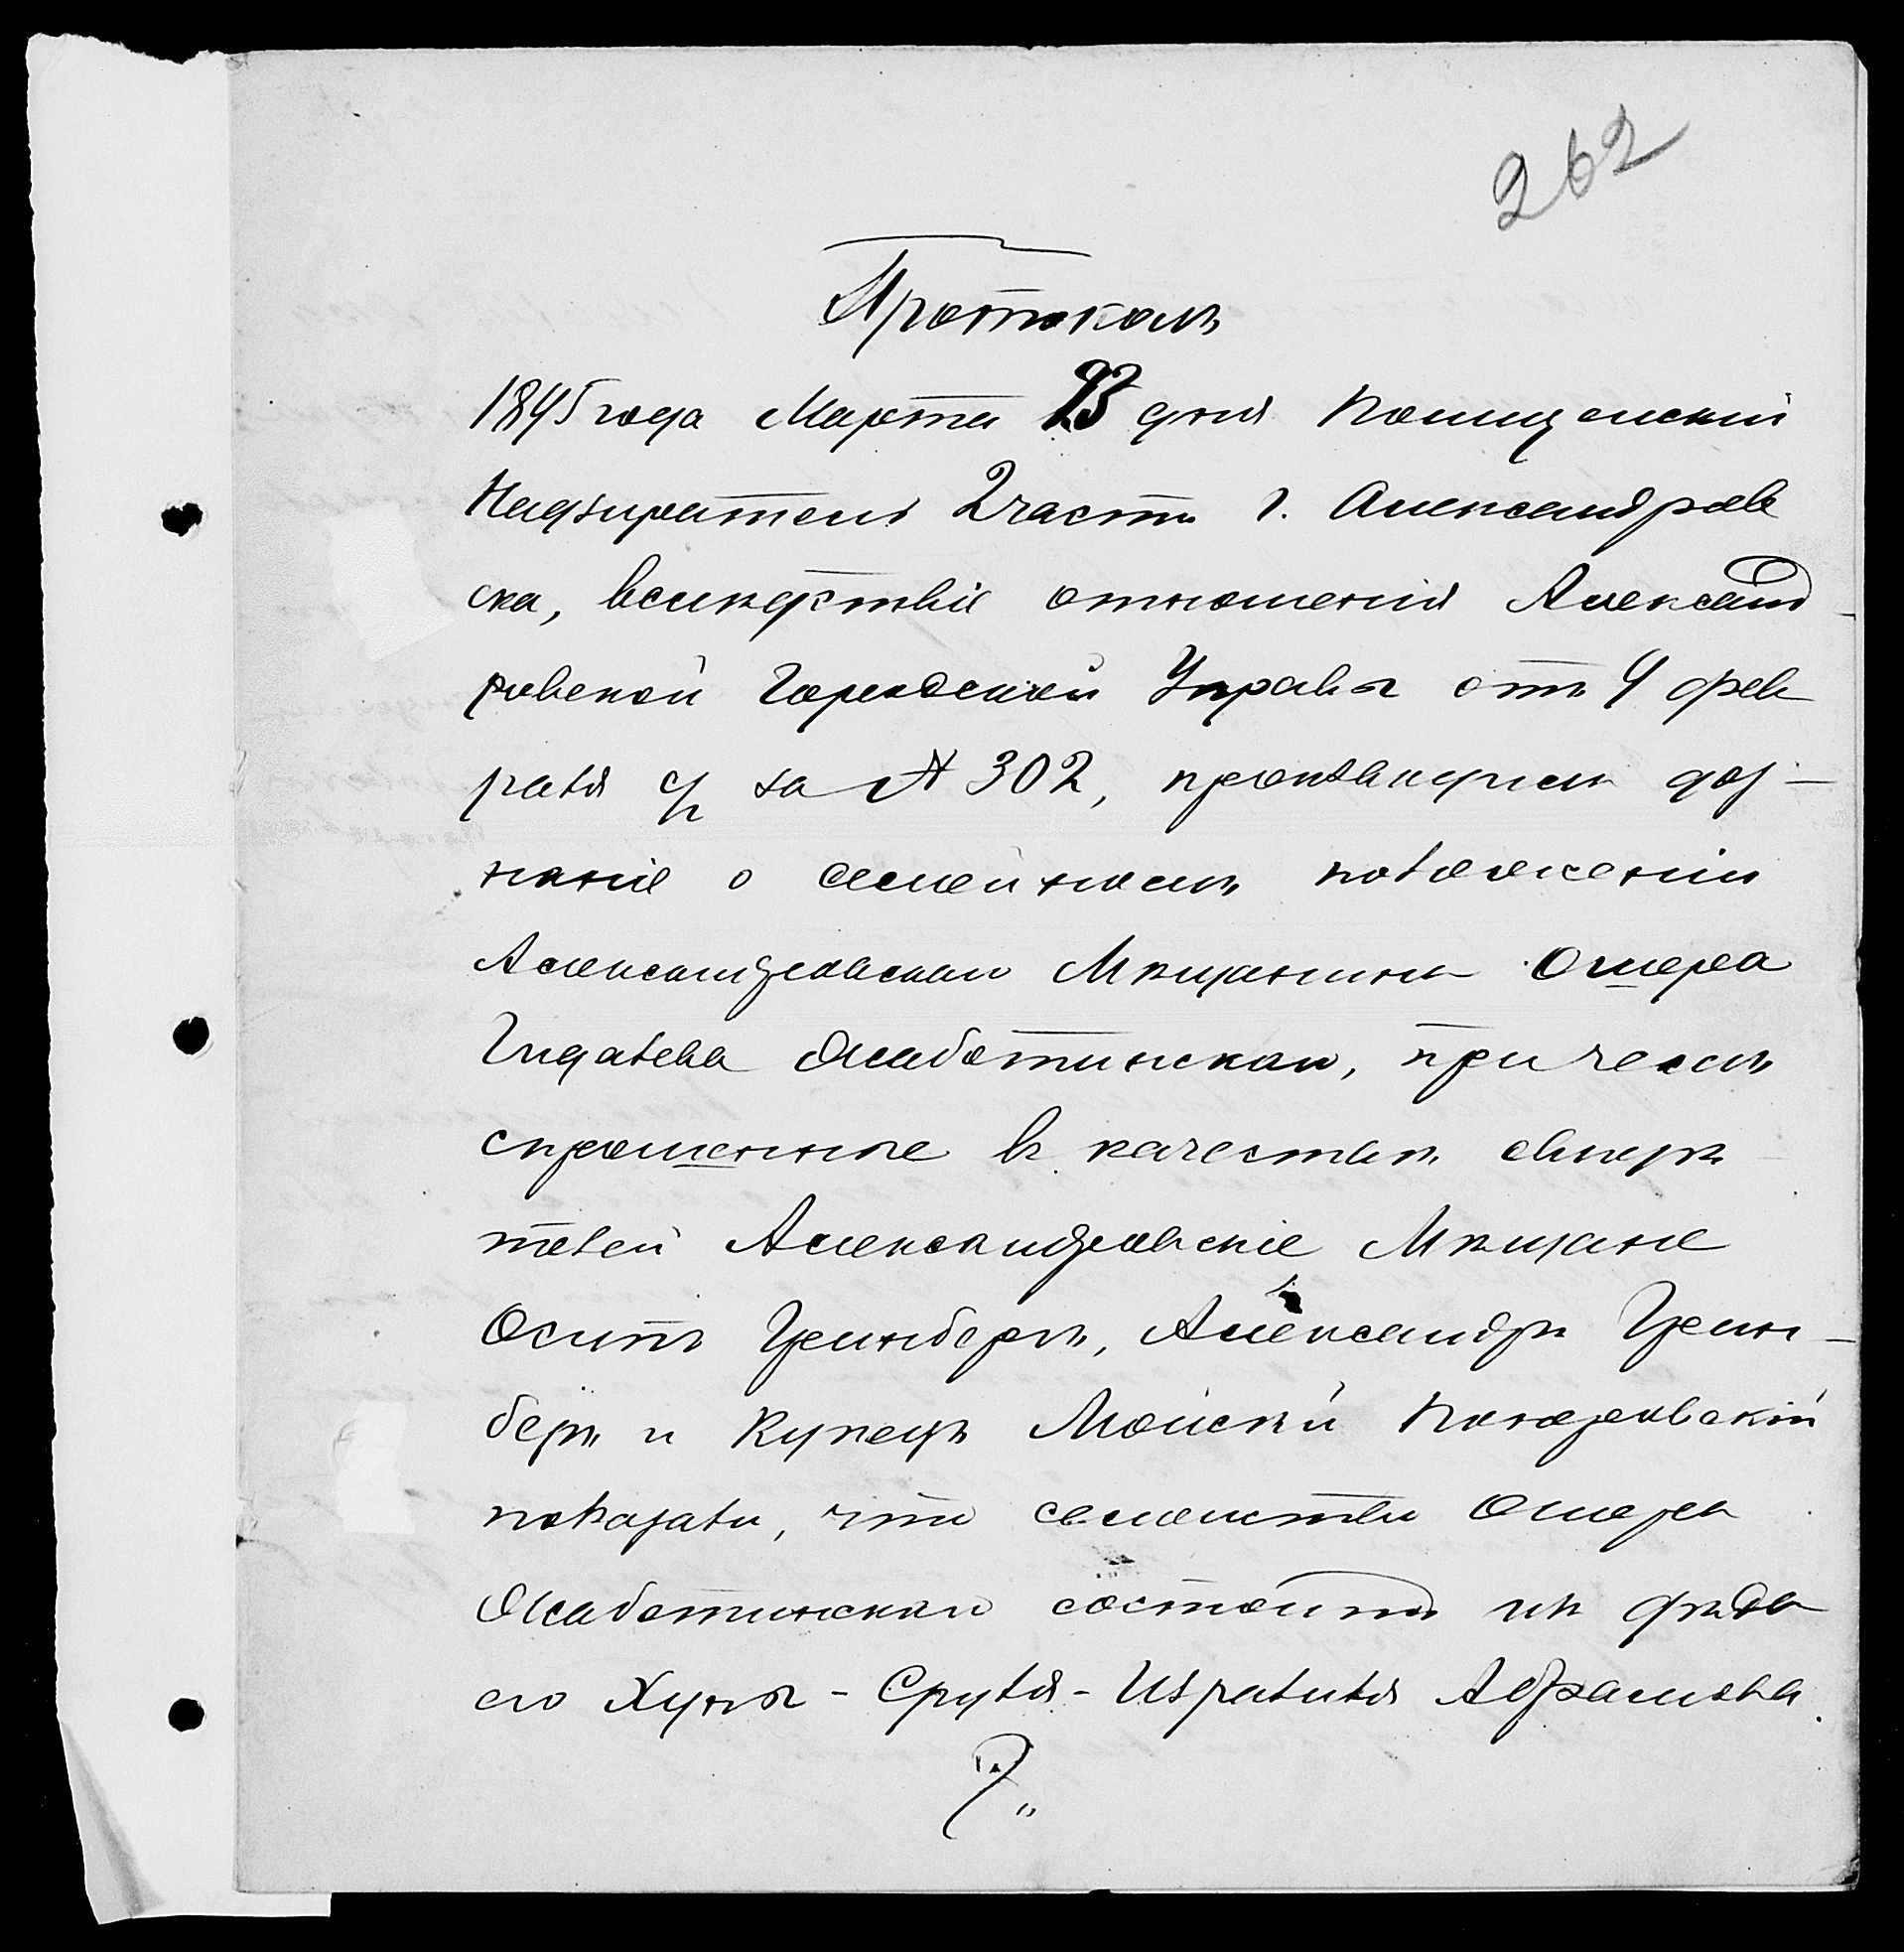 262
Протоколъ
1895 года Марта 23 дня Полицейскій
Надзиратель 2 части г. Александров
ска, вслѣдствіе отношенія Александ-
ровской Городской Управы отъ 4 фев
раля с/г за № 302, производилъ доз-
наніе о семейномъ положеніи
Александровскаго Мѣщанина Ошера
Гидалева Жаботинскаго, при чемъ
спрошенные въ качествѣ свидѣ
телей Александровскіе Мѣщане
Осипъ Гринбергъ, Александръ Грин-
бергъ и Купецъ Мойсей
показали, что семейство Ошера
Жаботинскаго состоитъ изъ
его Хуны-Сруля-Израиля Абрамова.